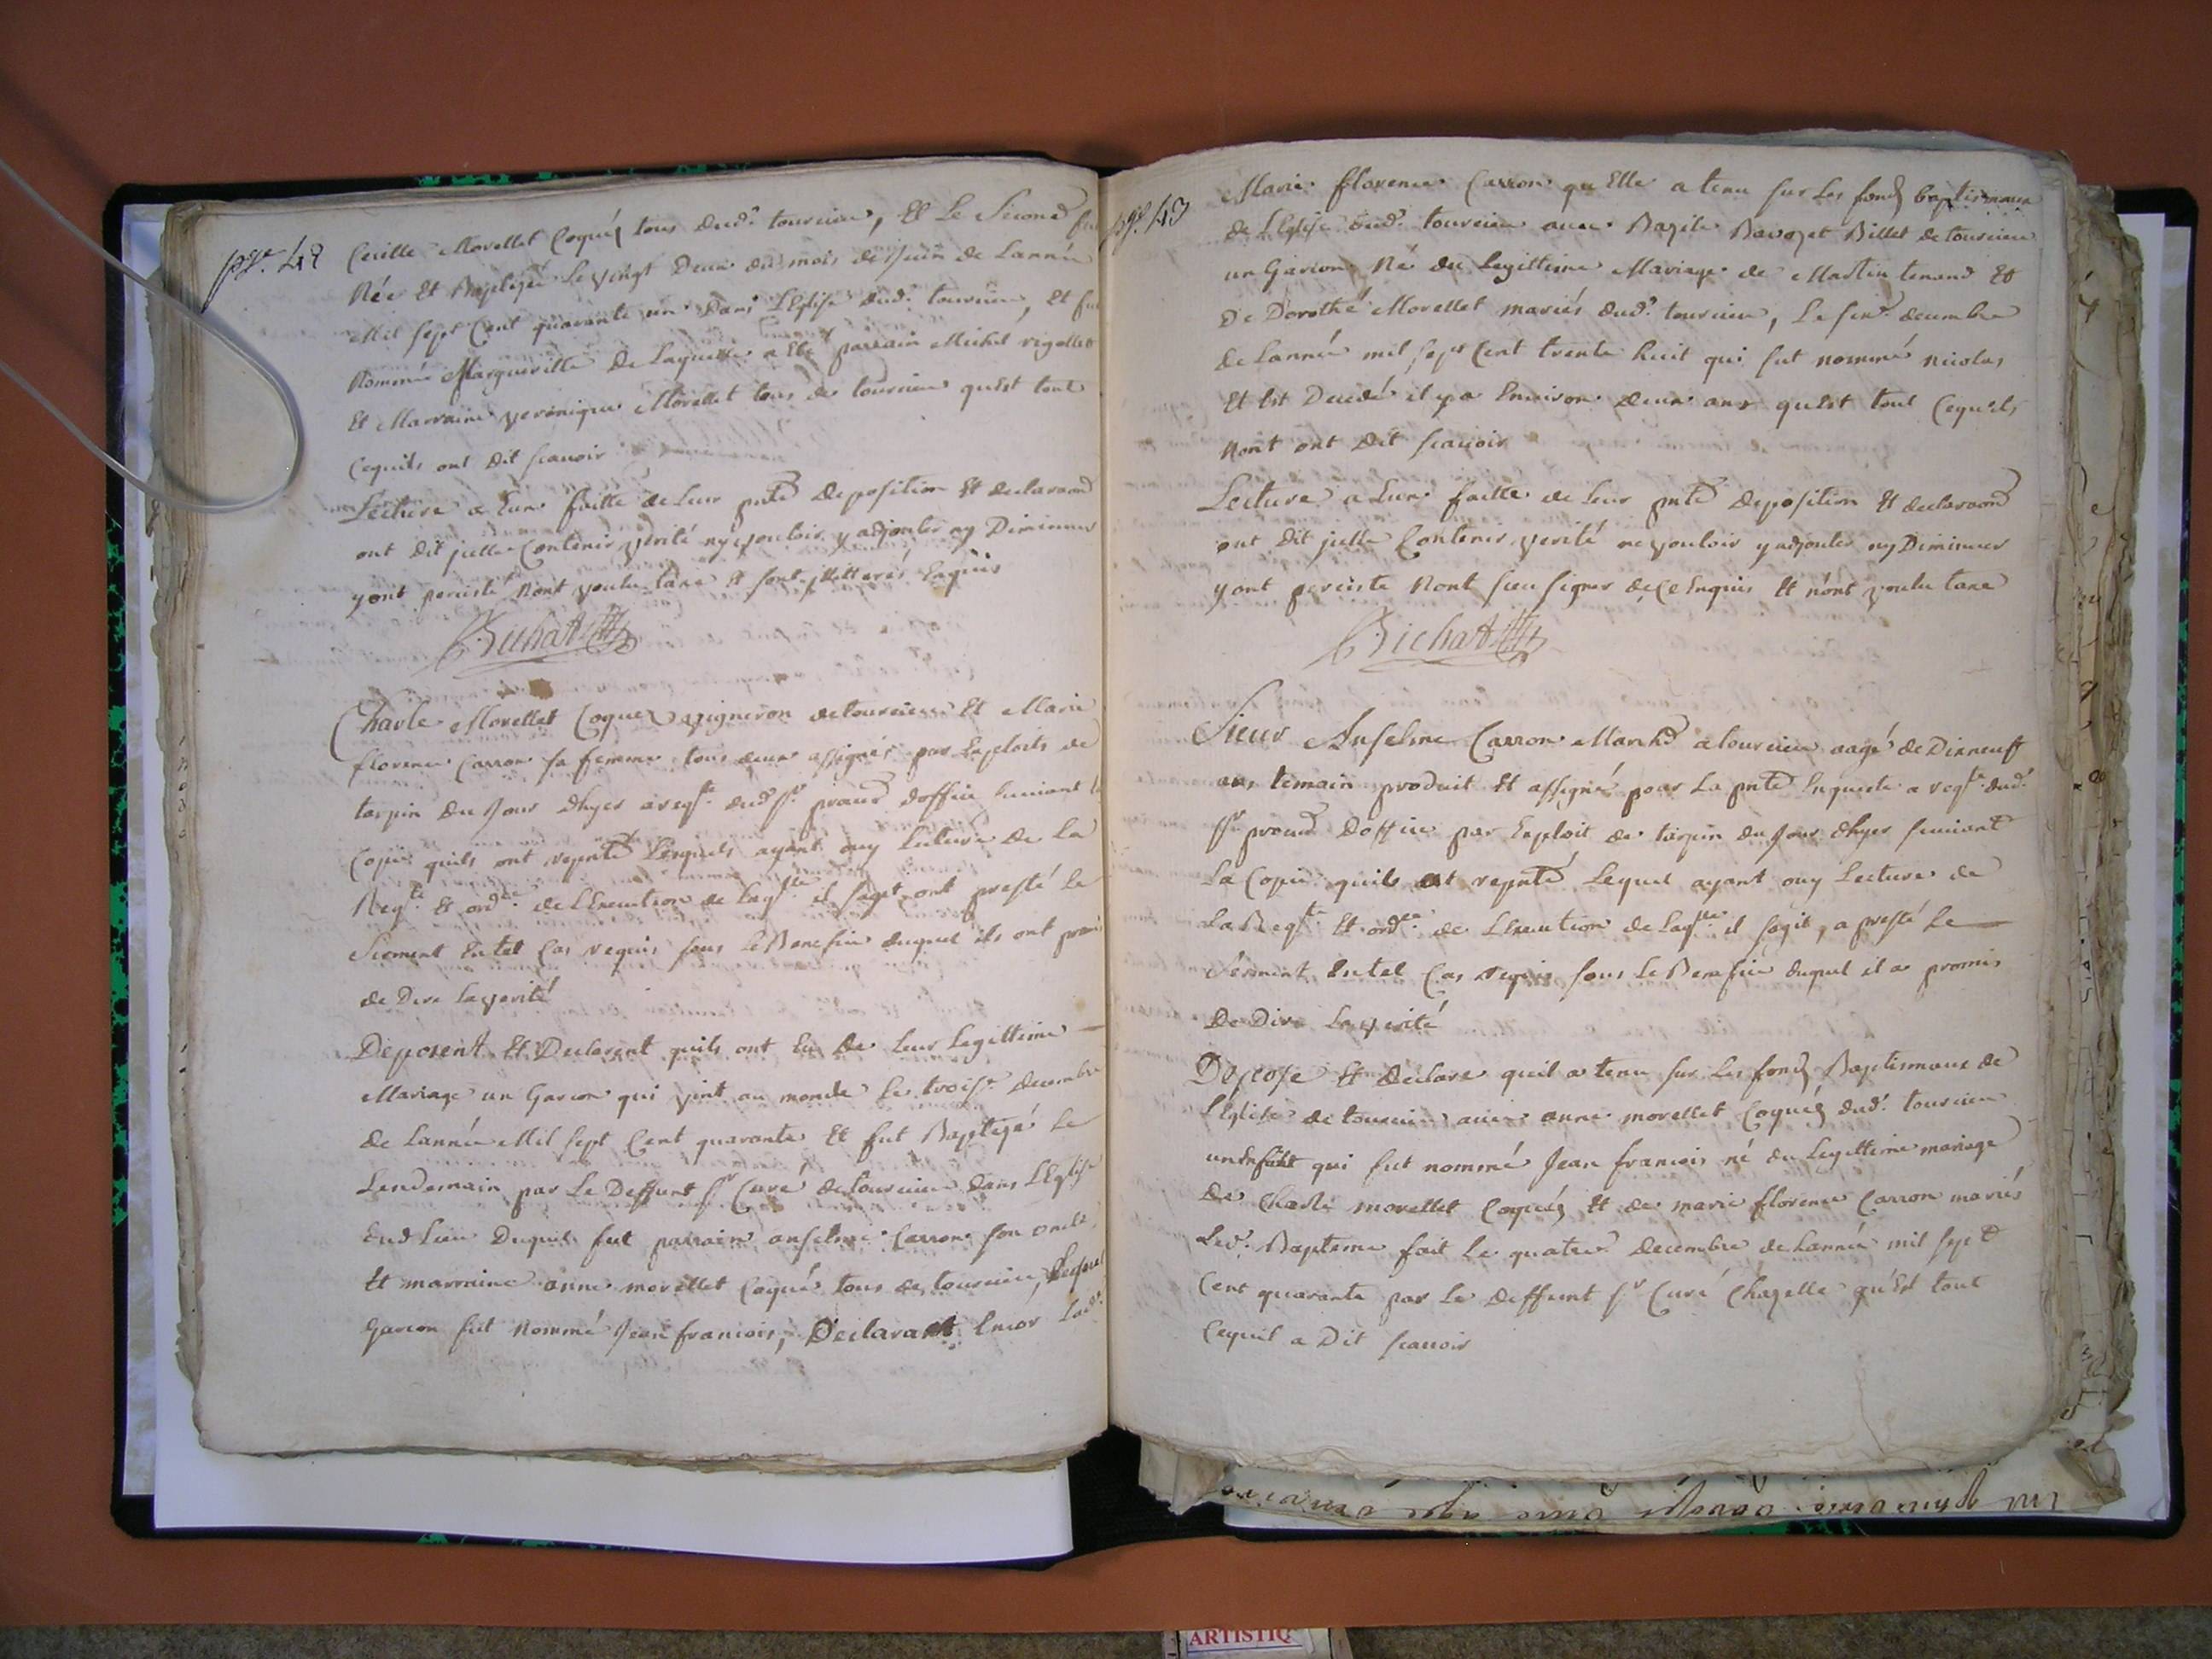 pge. 48
Cecille Morellet Coquéz tous dudt. tourcieu, Et Le Second fu
Née Et Baptizée Le vingt Deux du mois de Juin de Lannée
Mil sept Cent quarante un Dans LEglise dudt. tourcieu, Et fu
Nommée Margueritte De Laquelle a Eté parrain Michel rigollet
Et Marraine veronique Morellet tous de tourcieu quest tout
Cequils ont Dit scauoir
Lecture a Eux faitte de Leur pnte Deposition Et declaraon
ont Dit jcelle Contenir verité ny vouloir y adjouter ny Diminuer
yont percisté Nont voulu taxe Et sont jllitterés Enquis
Bichat
Charle Morellet Coquez vigneron de tourcieu Et Marie
florence Carron sa femme tous deux assignés par Exploits de
tarpin du Jour dhyer a reqte. dud sr. procur doffice suiuant la
Copie quils ont repnté Lesquels ayant ouy Lecture de La
Reqte Et ordce. de LExecution de laqlle. il sagit ont presté Le
Serment En tel Cas requis sous Le Benefice duquel ils ont promi
de Dire La verité
Deposent Et Declarent quils ont Eu De Leur Legittime
Mariage un Garcon qui vint au monde Le troise. Decembre
de Lannée Mil sept Cent quarante Et fut Baptizé Le
Lendemain par Le Deffunt sr Curé de tourcieu Dans LEglise
dud Lieu Duquel fut parrain anselme Carron son oncle
Et marraine anne morellet Coqué tous de tourcieu, Lequel
Garcon fut Nommé Jean francois, Declarant Encor Ladt.
pge. 49
Marie florence Carron qu Elle a tenu sur Les fondz baptismaux
de LEglise dudt. tourcieu auec Bazile Bavozet Billet de tourcieu
un Garcon Né du Legittime Mariage de Martin tenand Et
De Dorothé Morellet mariés dudt. tourcieu, Le sixe. decembre
de Lannée mil sept Cent trente huit qui fut nommé nicolas
Et Est Decedé il y a Enuiron deux ans quEst tout Cequils
Nont ont Dit scauoir
Lecture a Eux faitte de Leur pnte Deposition Et declaraon
ont Dit jcelle Contenir verité ne vouloir y adjouter ny Diminuer
y ont perciste Nont sceu signer de Ce Enquis Et n'ont voulu taxe
Bichat
Sieur Anselme Carron Marchd a tourcieu aagé de Dixneuf
ans temoin produit Et assigné pour La pnte Enquete a reqte. dudt.
sr procur Doffice par Exploit de tarpin du Jour dhyer suiuant
La Copie quils ont repnté Lequel ayant ouy Lecture de
La Reqte Et ordce. de LExecution de Laqlle il sagit, a presté Le
Serment Entel Cas requis sous Le Benefice duquel il a promis
De Dire La verité
Depose Et Declare quil a tenu sur Les fondz Baptismaux de
LEglise de tourcieu auec anne morellet Coquéz dudt. tourcieu
un Enfant qui fut nommé Jean francois né du Legittime mariage
De Charle morellet Coquéz Et de marie florence Carron mariés
Ledt. Bapteme fait Le quatre Decembre de Lannée mil sept
Cent quarante par Le Deffunt sr Curé Chapelle quEst tout
Cequil a Dit scauoir
ARTISTIQ